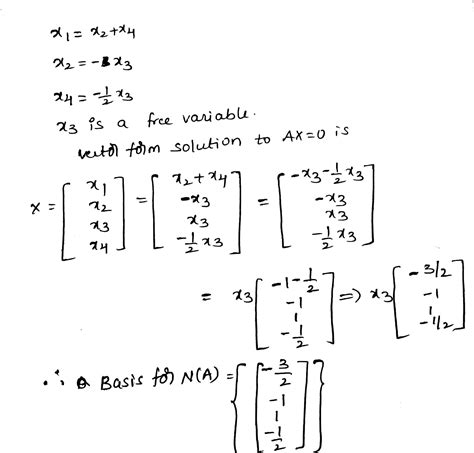 x₁ = x₂+x₄
x₂ = -x₃
x₄ = -½x₃
x₃ is a free variable.
vector form solution to AX=0 is
x = [x₁ x₂ x₃ x₄] = [x₂+x₄ -x₃ x₃ -½x₃] = [-x₃-½x₃ -x₃ x₃ -½x₃]
= x₃[-1-½ -1 1 -½] ⇒ x₃[-3/2 -1 1 -1/2]
∴ a Basis for N(A) = {[-3/2 -1 1 -½]}